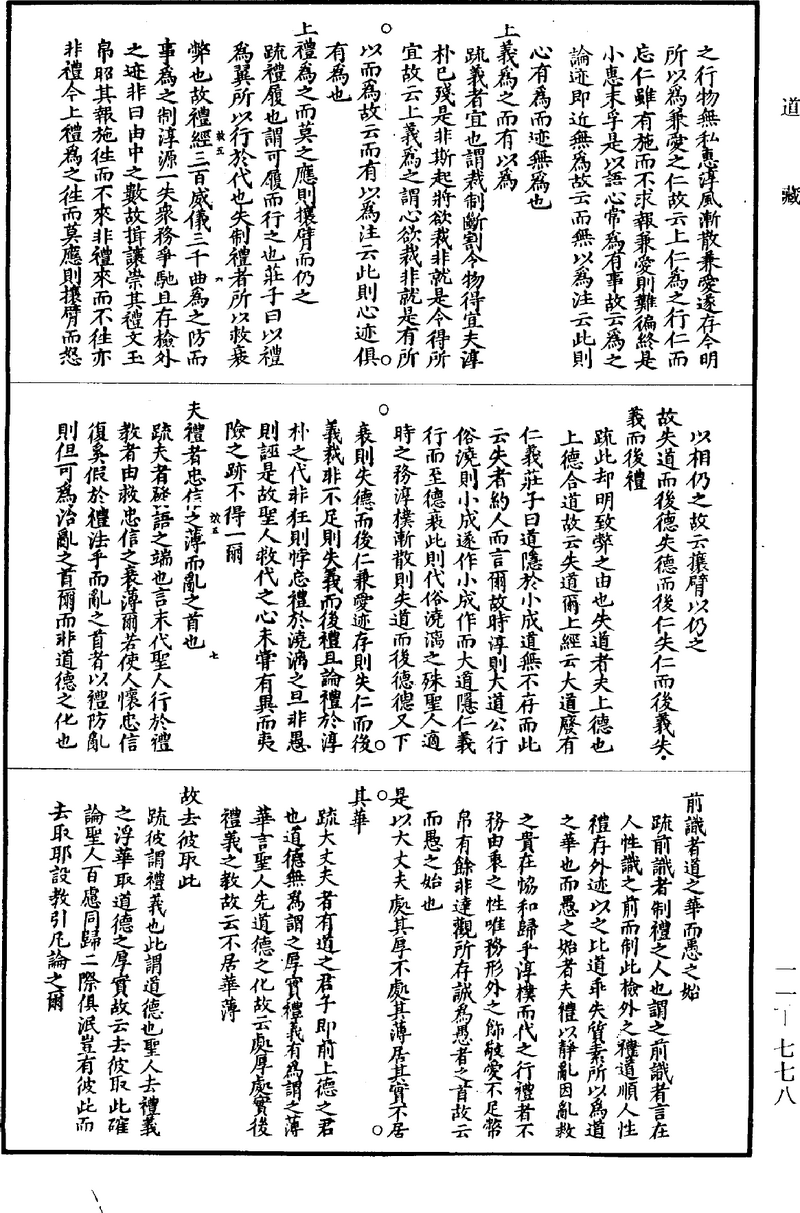 道藏
之行物無私惠淳風漸散兼愛遂存今明
所以為兼愛之仁故云上仁為之行仁而
忘仁雖有施而不求報兼愛則難徧終是
小惠未孚是以語心常為有事故云為之
論迹即近無為故云而無以為注云此則
心有為而迹無為也
上義為之而有以為
疏義者宜也謂裁制斷割令物得宜夫淳
朴已殘是非斯起將欲裁非就是令得所
宜故云上義為之謂心欲裁非就是有所
以而為故云而有以為注云此則心迹俱
有為也
上禮為之而莫之應則攘臂而仍之
疏禮履也謂可履而行之也莊子曰以禮
為翼所以行於代也失制禮者所以救衰
弊也故禮經三百威儀三千曲為之防而
事為之制淳源一失衆務爭馳且存檢外
之迹非曰由中之數故揖讓崇其禮文玉
帛昭其報施往而不來非禮來而不往亦
非禮今上禮為之往而莫應則攘臂而怒
以相仍之故云攘臂以仍之
故失道而後德失德而後仁失仁而後義失
義而後禮
疏此却明致弊之由也失道者夫上德也
上德合道故云失道爾上經云大道廢有
仁義莊子曰道隱於小成道無不存而此
云失者約人而言爾故時淳則大道公行
俗澆則小成遂作小成作而大道隱仁義
行而至德衰此則代俗澆漓之殊聖人適
時之務淳樸漸散則失道而後德德又下
衰則失德而後仁兼愛迹存則失仁而後
義裁非不足則失義而後禮且論禮於淳
朴之代非狂則悖忘禮於澆漓之旦非愚
則誣是故聖人救代之心未甞有異而夷
險之跡不得一爾
夫禮者忠信之薄而亂之首也
疏夫者發語之端也言末代聖人行於禮
教者由救忠信之衰薄爾若使人懷忠信
復奚假於禮法乎而亂之首者以禮防亂
則但可為治亂之首爾而非道德之化也
前識者道之華而愚之始
疏前識者制禮之人也謂之前識者言在
人性識之前而制此檢外之禮道順人性
禮存外迹以之比道乖失質素所以為道
之華也而愚之始者夫禮以靜亂因亂救
之貴在恊和歸乎淳樸而代之行禮者不
務由衷之性唯務形外之飾敬愛不足幣
帛有餘非達觀所存誠為愚者之首故云
而愚之始也
是以大丈夫處其厚不處其薄居其實不居
其華
疏大丈夫者有道之君子即前上德之君
也道德無為謂之厚實禮義有為謂之薄
華言聖人先道德之化故云處厚處實後
禮義之教故云不居華薄
故去彼取此
疏彼謂禮義也此謂道德也聖人去禮義
之浮華取道德之厚實故云去彼取此確
論聖人百慮同歸二際俱泯豈有彼此而
去取耶設教引凡論之爾
一一—七七八